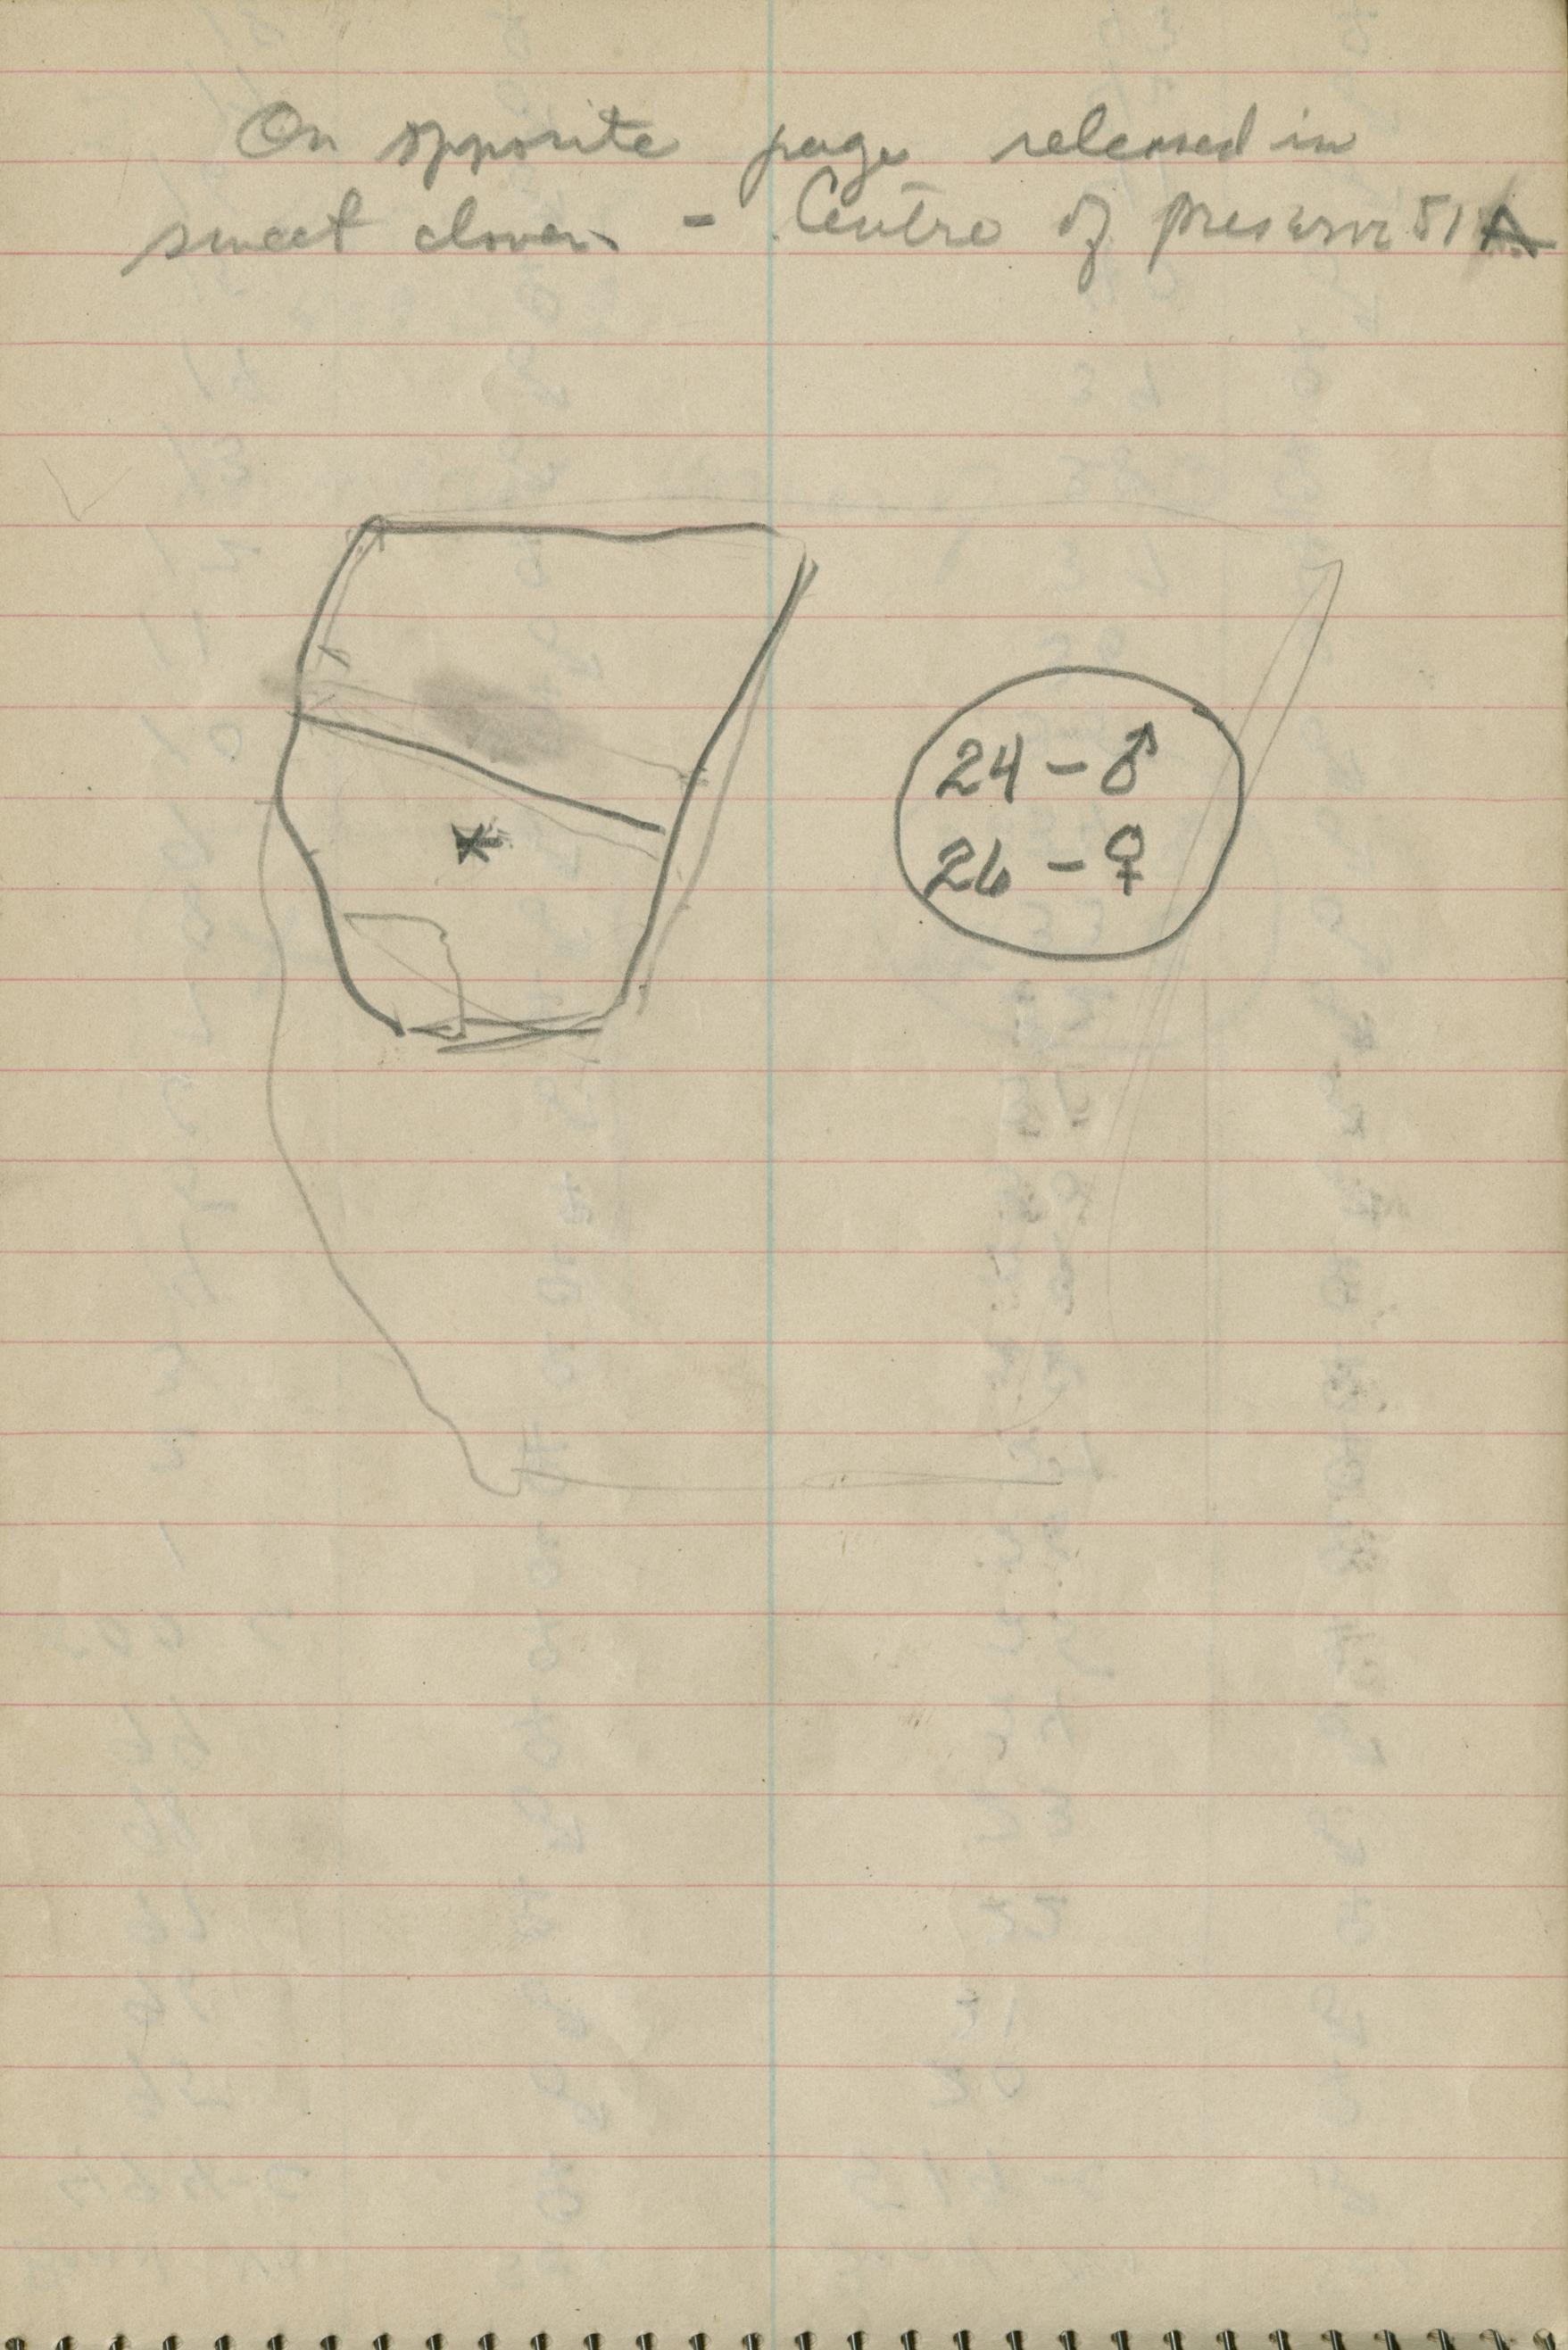 On opposite page released in
sweet clover - Centre of preserve 51A
24 - ♂
26 - ♀